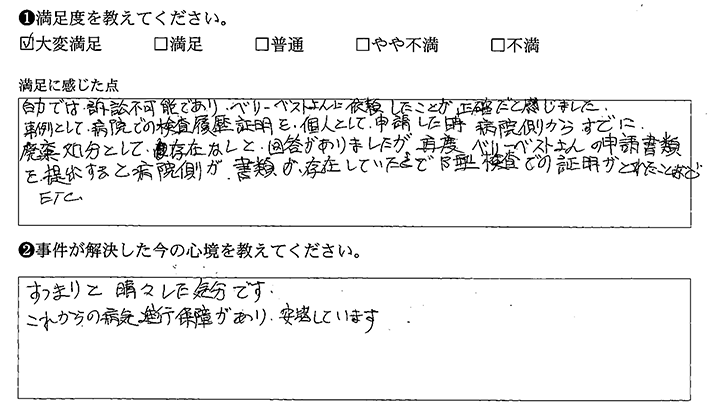 ❶満足度を教えてください。
☑大変満足 □満足 □普通 □やや不満 □不満
満足に感じた点
自力では、訴訟不可能であり、ベリーベストさんに依頼したことが正確だと感じました。
事例として、病院での検査履歴証明を、個人として、申請した時 病院側からすでに
廃棄処分として、存在なしと、回答がありましたが、再度 ベリーベストさんの申請書類
を提出すると病院側が、書類が、存在していたとでB型検査での証明がとれたことなど
ETC
❷事件が解決した今の心境を教えてください。
すっきりと 晴々した気分です。
これからの病気進行保障があり、安心しています